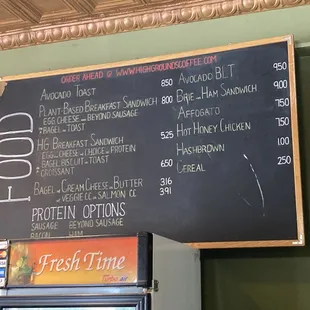 FOOD
ORDER AHEAD @ WWW.HIGHGROUNDSCOFFEE.COM
AVOCADO TOAST 850
PLANT-BASED BREAKFAST SANDWICH 800
EGG CHEESE BEYOND SAUSAGE
BAGEL OR TOAST
HG BREAKFAST SANDWICH 525
EGG CHEESE CHOICE OF PROTEIN
BAGEL, BISCUIT OR TOAST
CROISSANT
BAGEL w/ CREAM CHEESE OR BUTTER 316
w/ VEGGIE CC OR SALMON CC 391
PROTEIN OPTIONS
SAUSAGE BEYOND SAUSAGE
BACON HAM
AVOCADO BLT 950
BRIE AND HAM SANDWICH 750
AFFOGATO 750
HOT HONEY CHICKEN 750
HASHBROWN 100
CEREAL 250
Fresh Time